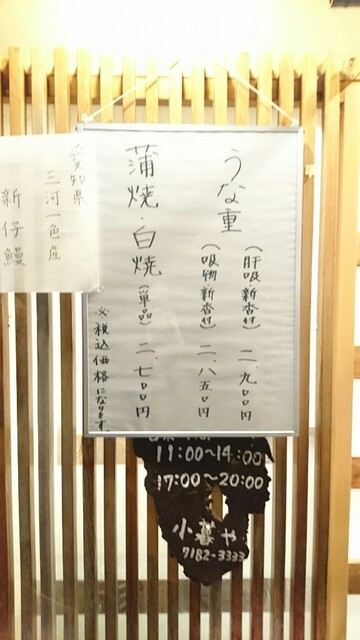 うな重
(肝吸・新香付) 二、九〇〇円
(吸物・新香付) 二、八五〇円
蒲焼・白焼(単品) 二、七〇〇円
※税込価格になります。
愛知県
三河一色産
新仔鰻
11:00~14:00
17:00~20:00
小暮や
7182-3333